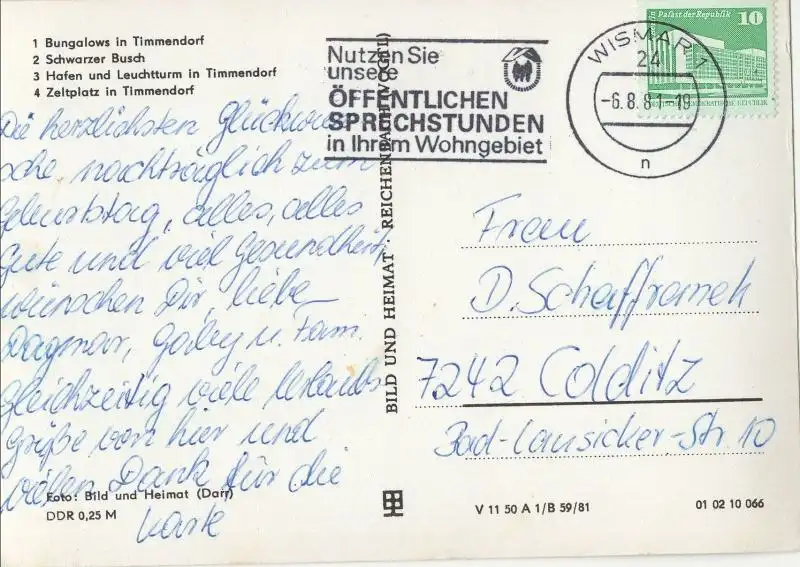 1 Bungalows in Timmendorf
2 Schwarzer Busch
3 Hafen und Leuchtturm in Timmendorf
4 Zeltplatz in Timmendorf
Die herzlichsten Glückwün-
sche nachträglich zum
Geburtstag, alles, alles
Gute und viel Gesundheit
wünschen Dir, liebe
Dagmar, u. Fam.
gleichzeitig viele Urlaubs-
grüße von hier und
vielen Dank für die
Karte
Foto: Bild und Heimat (Darr)
DDR 0,25 M
BILD UND HEIMAT · REICHENBACH (VOGTL)
Nutzen Sie
unsere
ÖFFENTLICHEN
SPRECHSTUNDEN
in Ihrem Wohngebiet
WISMAR 1
24
-6.8.81-19
n
Palast der Republik 10
Frau
D. Schaffranek
7242 Colditz
Bad-Lausicker-Str. 10
V 11 50 A 1/B 59/81
01 02 10 066